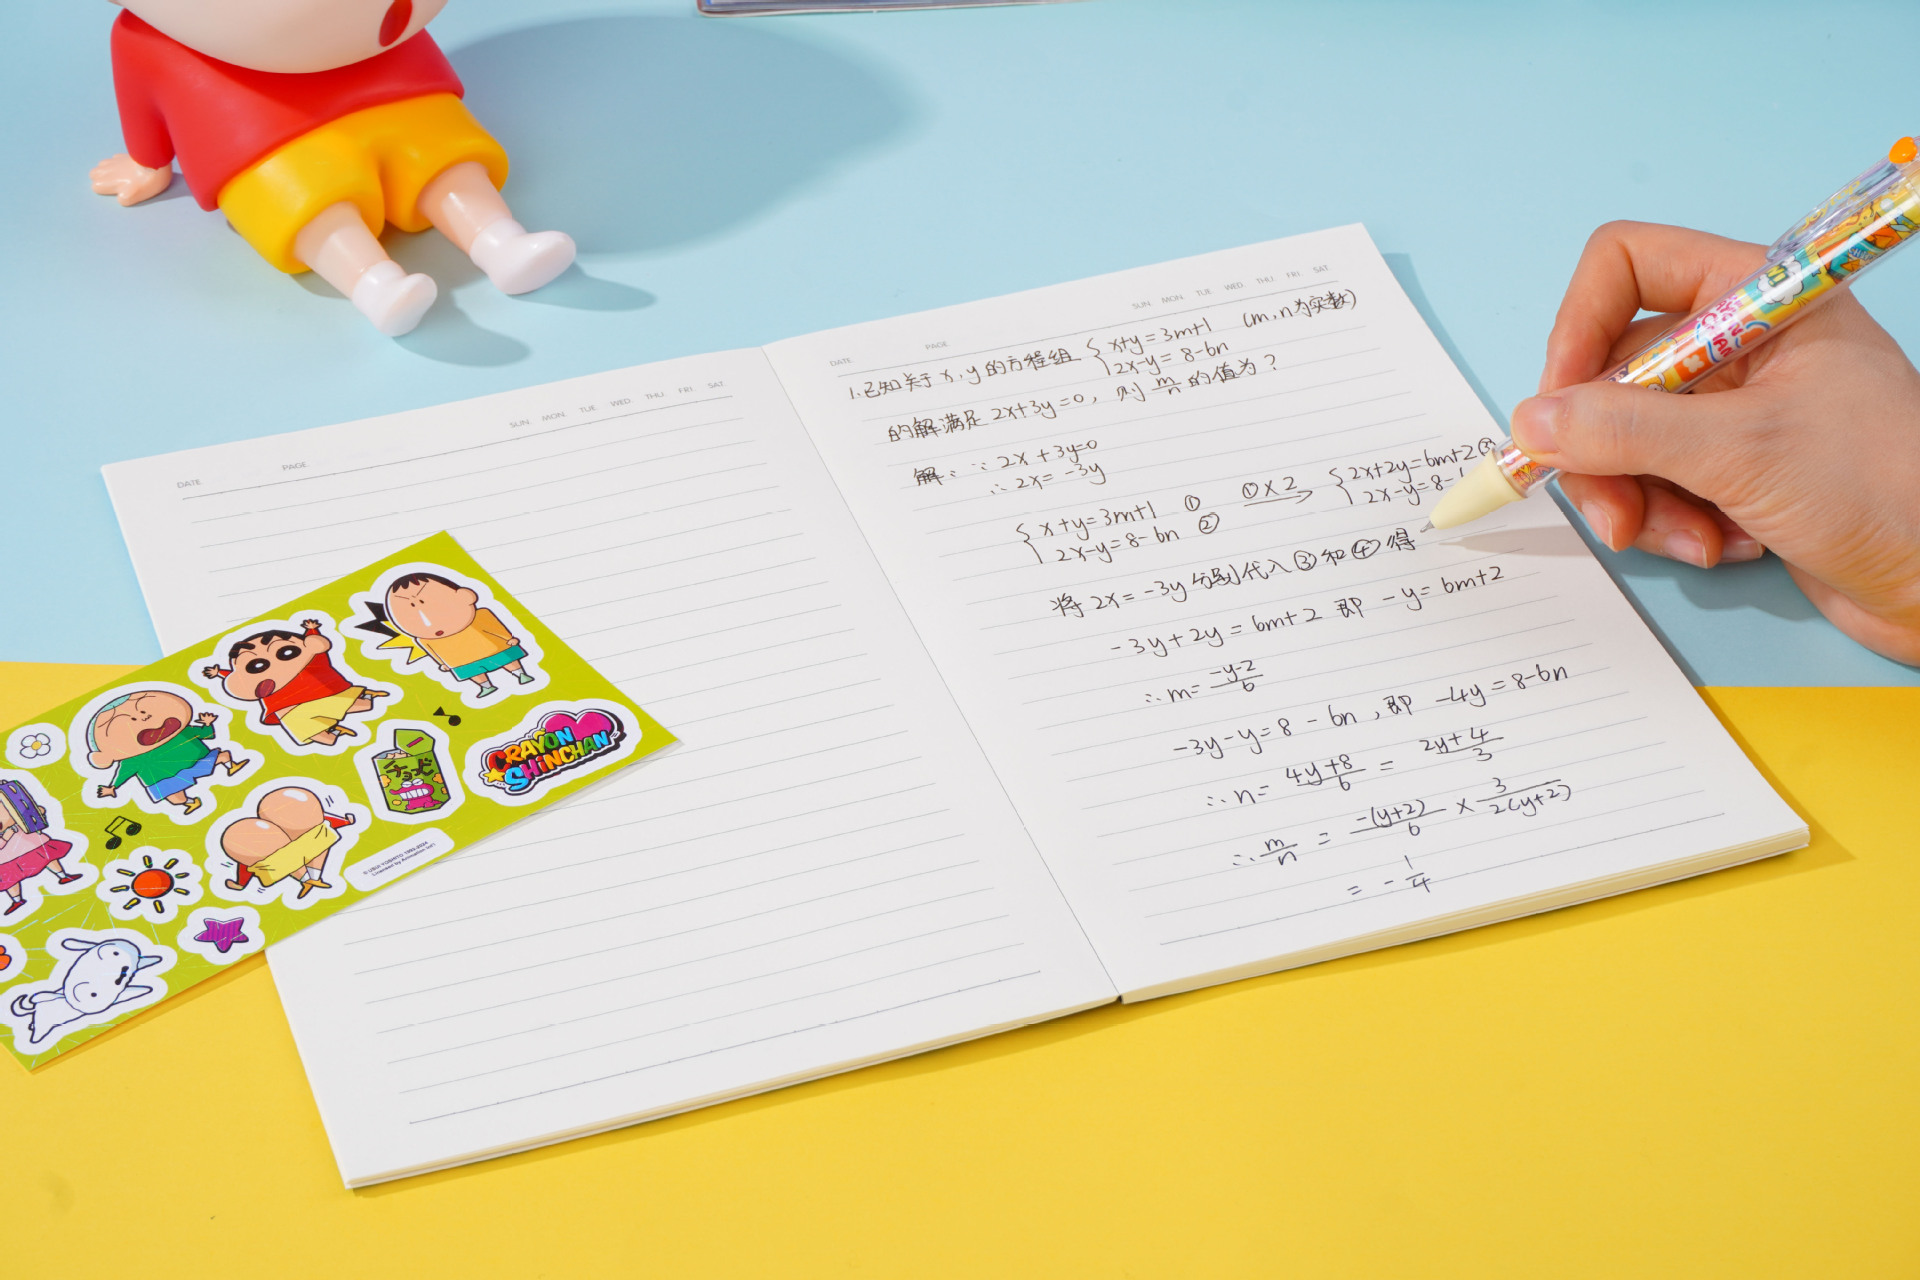 DATE PAGE SUN. MON. TUE. WED. THU. FRI. SAT.
DATE PAGE SUN. MON. TUE. WED. THU. FRI. SAT.
1.已知关于x,y的方程组 { x+y=3m+1 (m,n为实数)
2x-y=8-6n
的解满足2x+3y=0, 则 m/n 的值为?
解: ∵ 2x+3y=0
∴ 2x=-3y
{ x+y=3m+1 ① ①×2 { 2x+2y=6m+2 ③
2x-y=8-6n ② 2x-y=8-
将2x=-3y分别代入③和④得
-3y+2y=6m+2 即 -y=6m+2
∴m= -y-2/6
-3y-y=8-6n, 即 -4y=8-6n
∴n= 4y+8/6 = 2y+4/3
∴ m/n = -(y+2)/6 × 3/2(y+2)
= - 1/4
CRAYON
SHINCHAN
チョコビ
© USUI YOSHITO 1992-2024
Licensed by Animation Int'l